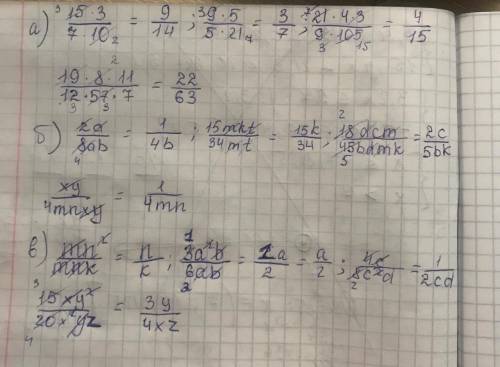 а) 15·3 / 7·10 = 9/14 ; 9·5 / 5·21 = 3/7 ; 21·4·3 / 9·105 = 4/15
19·8·11 / 12·57·7 = 22/63
б) 2a / 8ab = 1/4b ; 15mkt / 34mt = 15k/34 ; 18dcm / 45bdmk = 2c/5bk
xy / 4mnxy = 1/4mn
в) mn² / mnk = n/k ; 3a²b / 6ab = 1a/2 = a/2 ; 4c / 8c²d = 1/2cd
15xy² / 20x²yz = 3y/4xz